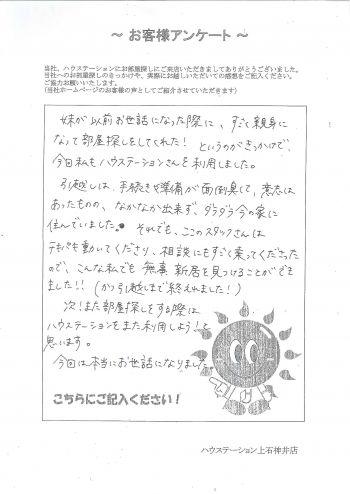 ～ お客様アンケート ～
当社、ハウステーションにお部屋探しにご来店いただきましてありがとうございました。
当社へのお部屋探しのきっかけや、実際にお越しいただいての感想をご記入ください。
ご協力お願いいたします。
(当社ホームページのお客様の声としてご紹介させていただきます)
妹が以前お世話になった際に、すごく親身に
なって部屋探しをしてくれた! というのがきっかけで、
今回私もハウステーションさんを利用しました。
引越しは、手続きや準備が面倒臭くて、意志は
あったものの、なかなか出来ず、ダラダラ今の家に
住んでいました。それでも、ここのスタッフさんは
テキパキ動いてくださり、相談にもすごく乗ってくださった
ので、こんな私でも無事新居を見つけることができ
ました!! (かつ引越しまで終えれました!)
次!また部屋探しをする際は
ハウステーションをまた利用しよう!と
思います。
今回は本当にお世話になりました。
こちらにご記入ください!
ハウステーション上石神井店